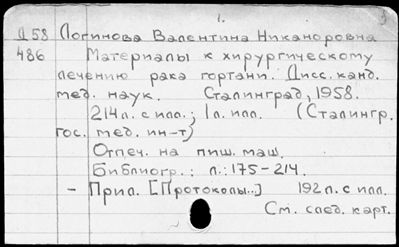 1.
Д58 Логинова Валентина Никаноровна
486 Материалы к хирургическому
лечению рака гортани. Дисс. канд.
мед. наук. Сталинград, 1958.
214л. с илл.; 1л. илл. (Сталингр.
гос. мед. ин-т)
Отпеч. на пиш. маш.
Библиогр.: л.: 175-214.
- Прил. [Протоколы..] 192 л. с илл.
См. след. карт.